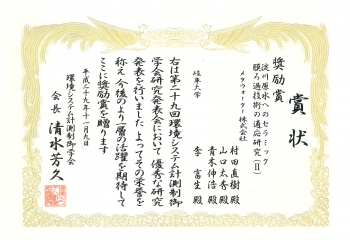 賞状
奨励賞
淀川原水へのセラミック
膜ろ過技術の適応研究(Ⅱ)
メタウォーター株式会社
村田直樹殿
山口太秀殿
青木伸浩殿
岐阜大学
李富生殿
右は第二十九回環境システム計測制御
学会研究発表会において優秀な研究
発表を行いました よってその栄誉を
称え 今後のより一層の活躍を期待して
ここに奨励賞を贈ります
平成二十九年十一月九日
環境システム計測制御学会
会長 清水芳久